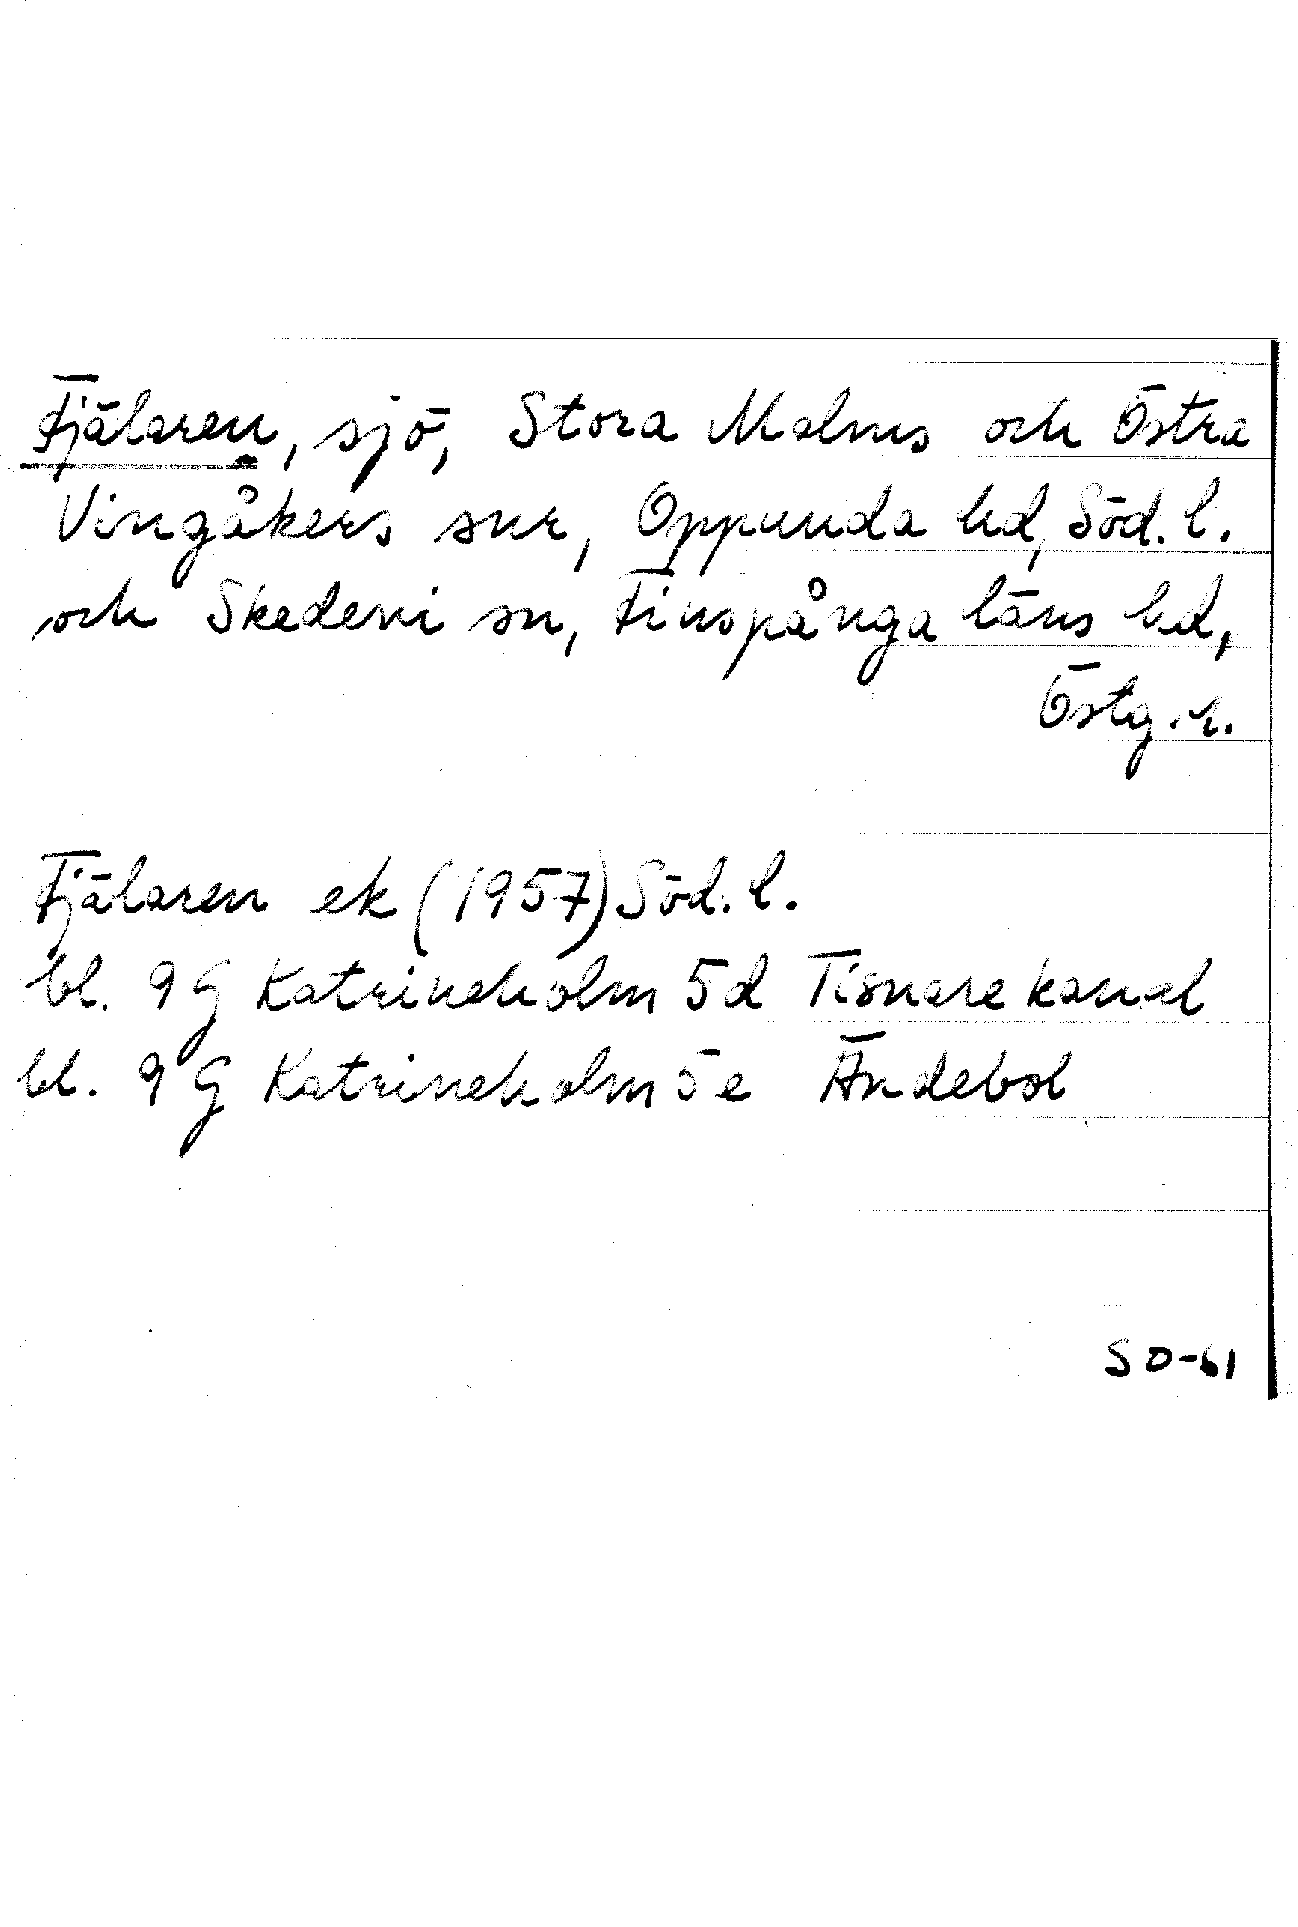 Fjälaren, sjö, Stora Malms och Östra
Vingåkers snr, Oppunda hd, Söd. l.
och Skedevi sn, Finspånga läns hd,
Östg. l.
Fjälaren ek (1957) Söd. l.
bl. 9 G Katrineholm 5d Tisnare kanal
bl. 9 G Katrineholm 5e Ändebol
SO-61